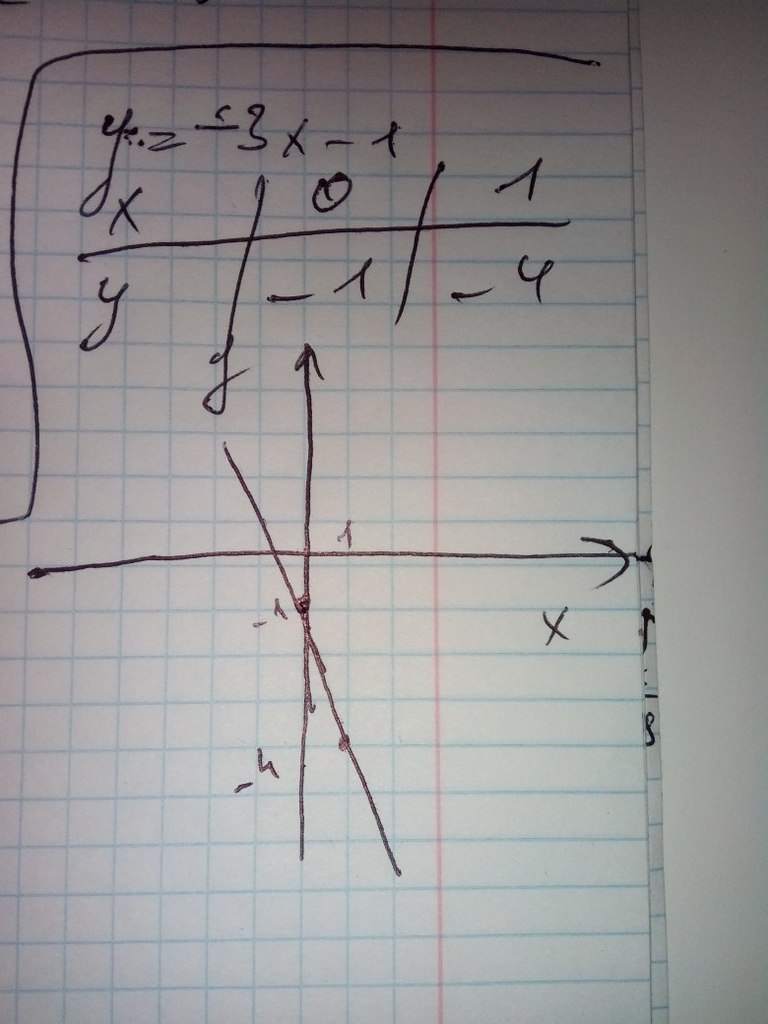 y = -3x - 1
x 0 1
y -1 -4
y
1
-1
x
-4